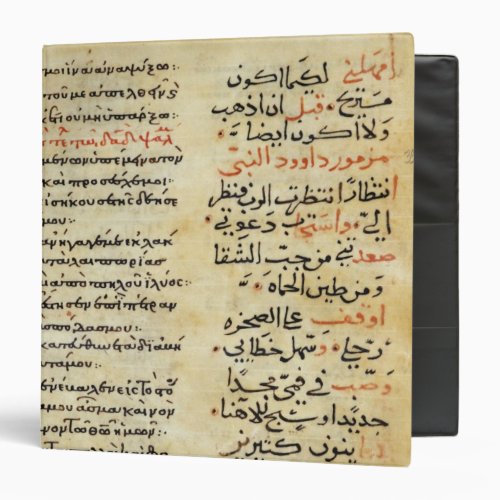 σμοι ἵνα ἀναψύξω:·
τοῦ με ἀπελθεῖν
κέτι οὐ μὴ ὑπάρξω:·
τῶ δαδ ψαλ
μένων ὑπέμεινα τὸν
καὶ προσέσχε μοι:·
ἰσήκουσε τῆς δεήσε
μου:·
ἀνήγαγέ με ἐκ λάκ
ταλαιπωρίας
ἀπὸ πηλοῦ ἰλύος:·
στησεν ἐπὶ πέτραν
όδας μου:·
κατηύθυνε τὰ διαβή
τά μου:·
ἐνέβαλεν εἰς τὸ στό
μου ἆσμα καινὸν
μνον τῷ θῶ ἡμῶν:·
امهلني لكيما اكون
مستريح قبل ان اذهب
ولا اكون ايضا
مزمور داوود النبي
انتظارًا انتظرت الرب فنظر
اليّ واستجاب دعوتي
صعدني من جبّ الشقا
ومن طين الحماة
اوقف على الصخره
رجلي وسهل خطاي
وصب في فمي مجدًا
جديدا وسبح لالاهنا
كثيرين